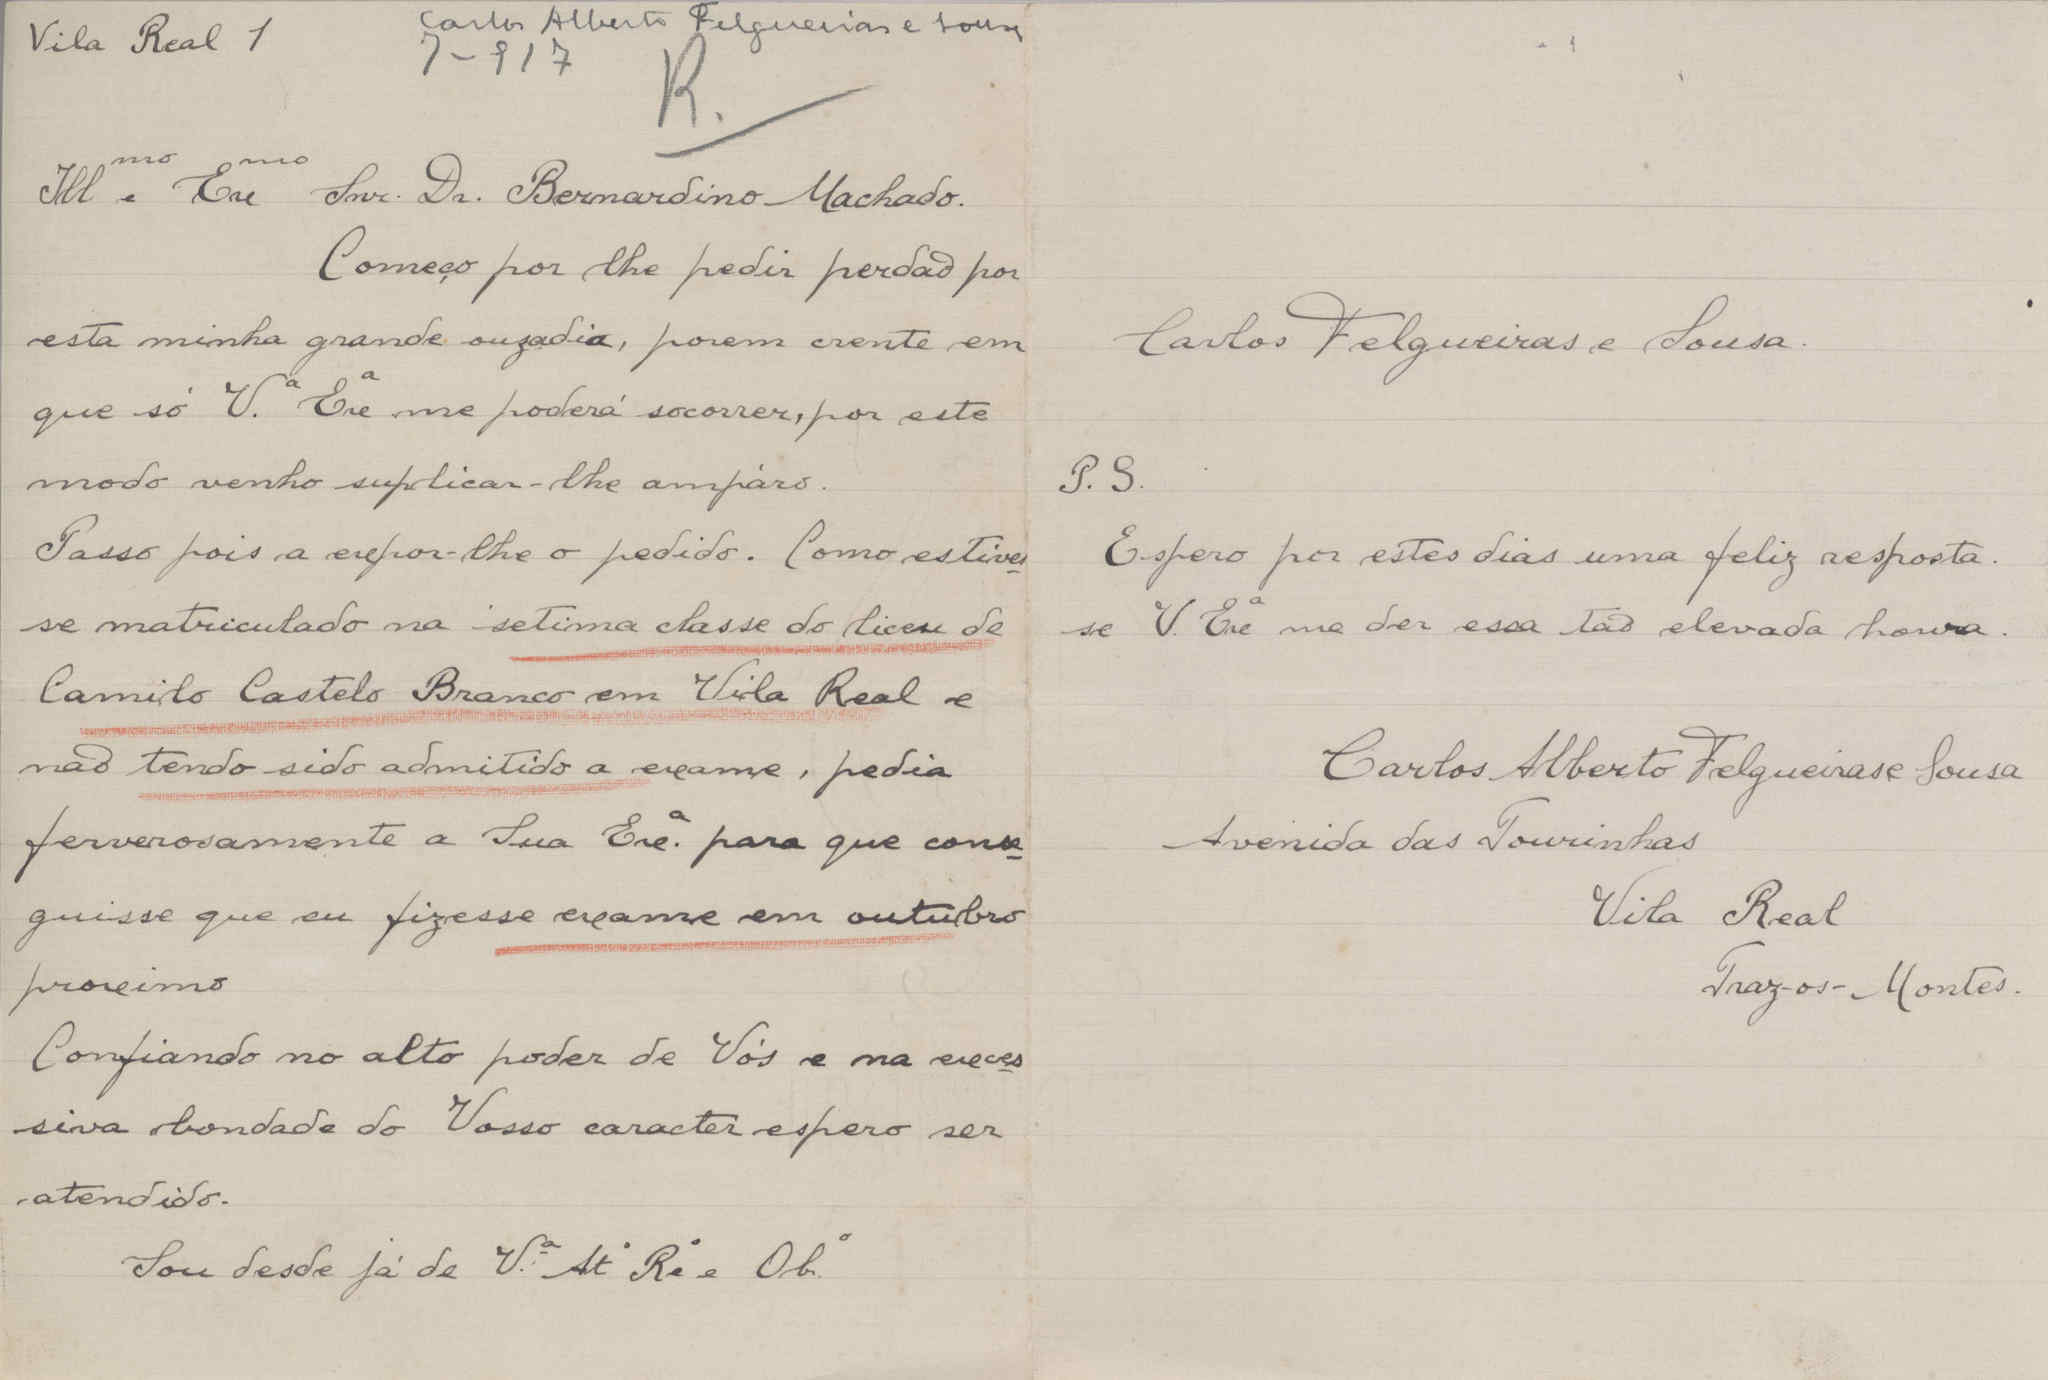 Vila Real 1
Carlos Alberto Felgueiras e Sousa
7-917
R.
Ill^mo e Exc^mo Snr. Dr. Bernardino Machado.
Começo por lhe pedir perdaõ por
esta minha grande ouzadia, porem crente em
que só V.ª Exc^a me poderá socorrer, por este
modo venho suplicar-lhe ampáro.
Passo pois a expor-lhe o pedido. Como estives
se matriculado na setima classe do liceu de
Camilo Castelo Branco em Vila Real e
naõ tendo sido admitido a exame, pedia
ferverosamente a Sua Exc.ª para que conse
guisse que eu fizesse exame em outubro
proximo
Confiando no alto poder de Vós e na exces
siva bondade do Vosso caracter espero ser
atendido.
Sou desde já de V.ª At° Rº e Ob.°
Carlos Felgueiras e Sousa.
P.S.
Espero por estes dias uma feliz resposta.
se V. Exc^a me der essa taõ elevada honra.
Carlos Alberto Felgueiras e Sousa
Avenida das Tourinhas
Vila Real
Traz-os-Montes.